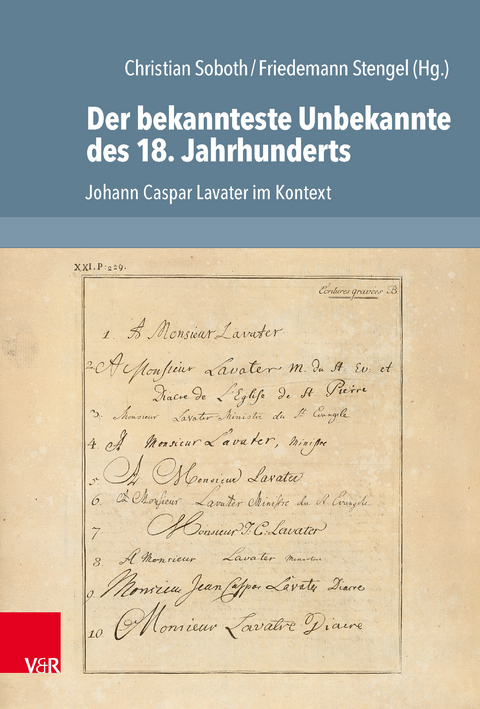 Christian Soboth/Friedemann Stengel (Hg.)
Der bekannteste Unbekannte
des 18. Jahrhunderts
Johann Caspar Lavater im Kontext
XXI. P: 229.
Ecritures gravées B.
1. A Monsieur Lavater
2. A Monsieur Lavater M. du St. Ev. et
Diacre de L'Eglise de St Pierre
3. Monsieur Lavater Ministre du St Evangele
4. A Monsieur Lavater, Ministre
5. A Monsieur Lavater
6. A Monsieur Lavater Ministre du St Evangele
7 Monsieur J: C: Lavater
8 A Monsieur Lavater
9. Monsieur Jean Caspar Lavater Diacre
10 Monsieur Lavatre Diacre
V&R